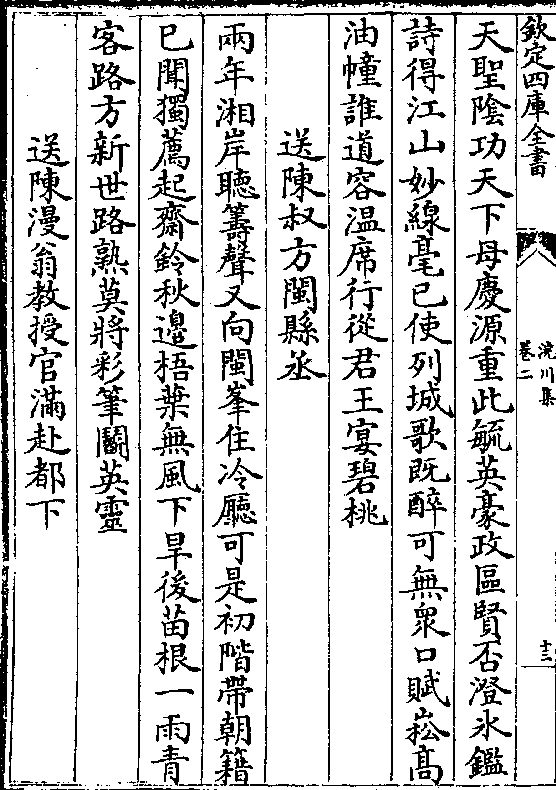 欽定四庫全書
浣川集
卷二
十三
天聖陰功天下母慶源重此毓英豪政區賢否澄氷鑑
詩得江山妙線毫已使列城歌既醉可無衆口賦崧髙
油幢誰道容温席行從君王宴碧桃
送陳叔方閩縣丞
兩年湘岸聽籌聲又向閩峯住冷廳可是初階帶朝籍
已聞獨薦起齋鈴秋邉梧葉無風下旱後苗根一雨青
客路方新世路熟莫將彩筆鬭英靈
送陳漫翁教授官滿赴都下